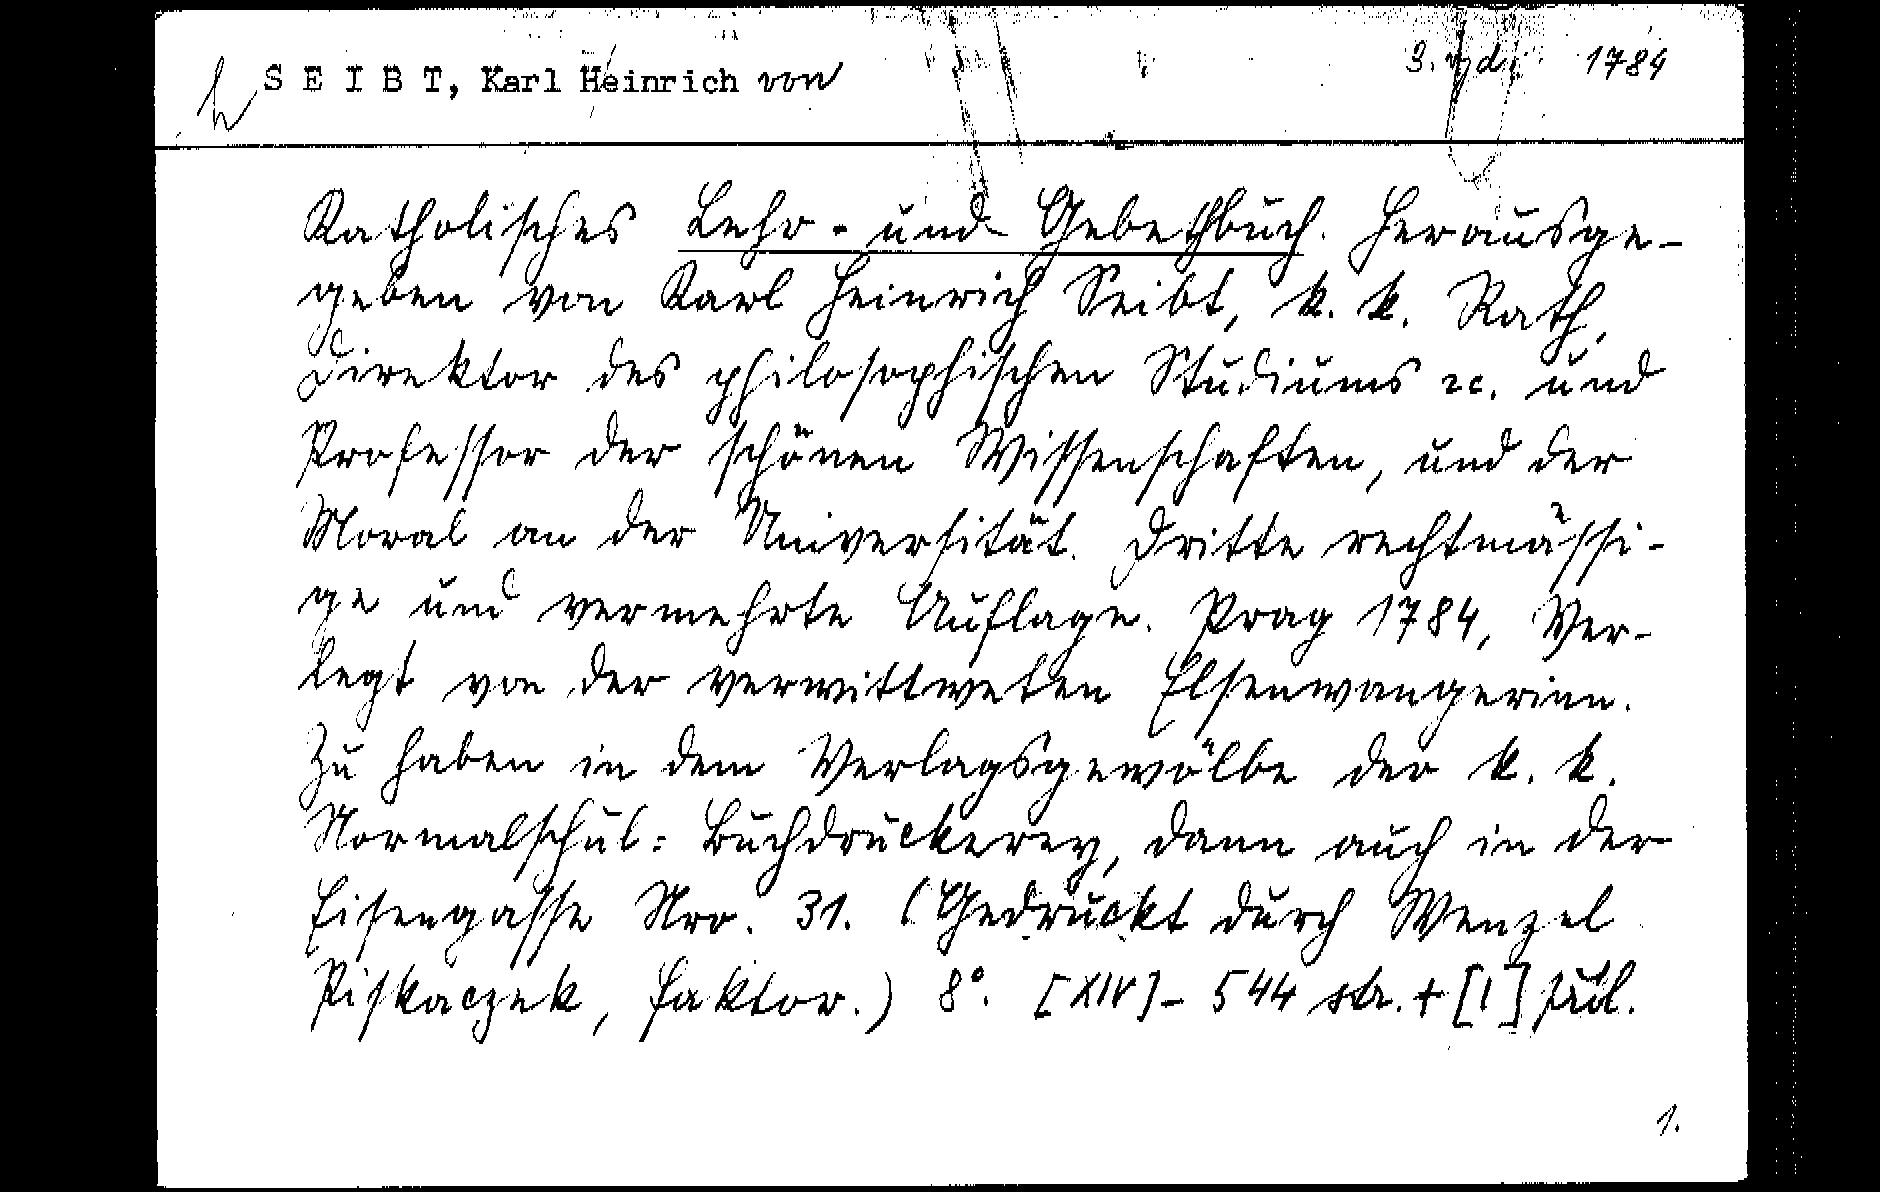 S E I B T, Karl Heinrich von
3. vyd. 1784
Katholisches Lehr- und Gebethbuch. Herausge-
geben von Karl Heinrich Seibt, k. k. Rath,
Direktor des philosophischen Studiums ꝛc. und
Professor der schönen Wissenschaften, und der
Moral an der Universität. Dritte rechtmässi-
ge und vermehrte Auflage. Prag 1784, Ver-
legt von der verwittweten Elsenwangerinn.
Zu haben in dem Verlagsgewölbe der k. k.
Normalschul= Buchdruckerey, dann auch in der
Eisengasse Nro. 31. (Gedruckt durch Wenzel
Piskaczek, Faktor.) 8°. [XIV] - 544 str. + [1] příl.
1.